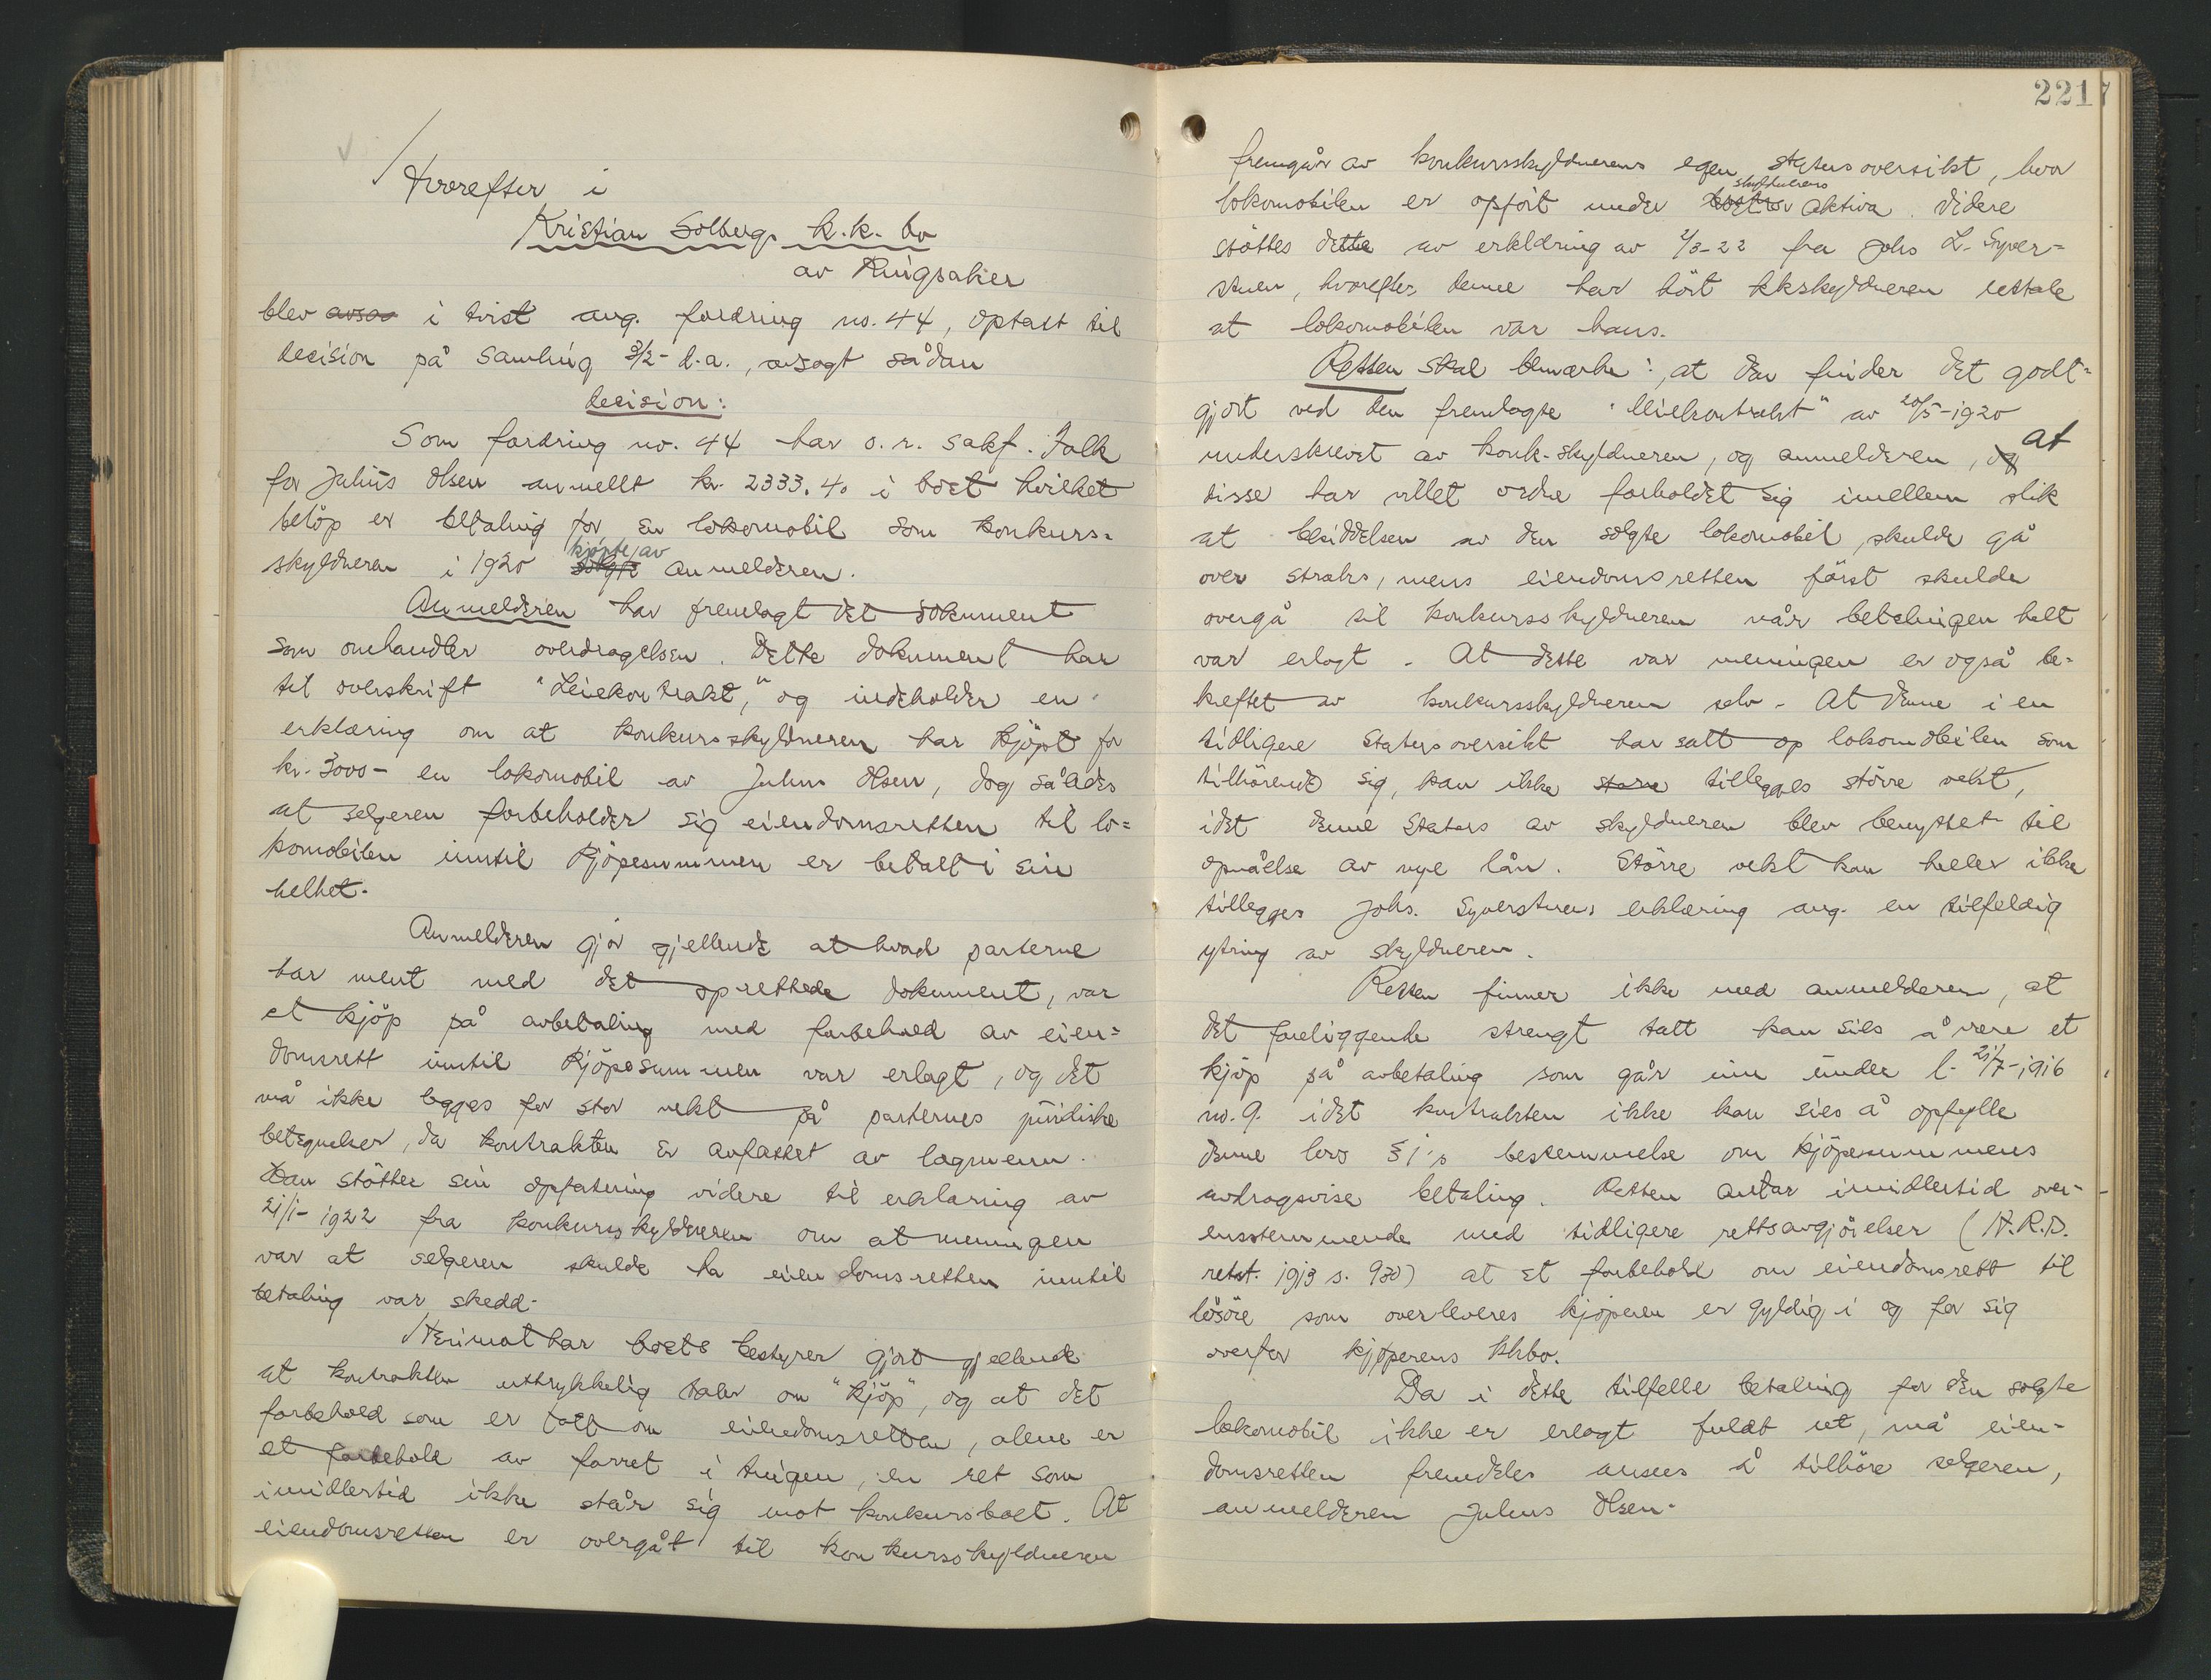 Hvorefter i
Kristian Solbergs k.k. bo
av Ringsaker
blev avsa i tvist ang. fordring no. 44, optatt til
decision på samling 3/2- d.a., avsagt sådan
decision:
Som fordring no. 44 har o.r. sakf. Falk
for Julius Olsen anmeldt kr. 2333.40 i boet hvilket
beløp er betaling for en lokomobil som konkurs=
skyldneren i 1920 solgte kjøpte av anmelderen.
Anmelderen har fremlagt det dokument
som omhandler overdragelsen. Dette dokument har
til overskrift "Leiekontrakt," og indeholder en
erklæring om at konkursskyldneren har kjöpt for
kr. 3000- en lokomobil av Julius Olsen, dog således
at selgeren forbeholder sig eiendomsretten til lo=
komobilen inntil kjöpesummen er betalt i sin
helhet.
Anmelderen gjör gjellende at hvad parterne
har ment med det oprettede dokument, var
et kjöp på avbetaling med forbehold av eien=
domsrett inntil kjöpesummen var erlagt, og det
må ikke legges for stor vekt på parternes juridiske
betegnelser, da kontrakten er avfattet av lægmenn.
Han stötter sin opfatning videre til erklæring av
21/1- 1922 fra konkursskyldneren om at meningen
var at selgeren skulde ha eiendomsretten inntil
betaling var skedd.
Herimot har boets bestyrer gjort gjellende
at kontrakten uttrykkelig taler om "kjöp", og at det
forbehold som er tatt om eiendomsretten, alene er
et forbehold av forret i tingen, en ret som
imidlertid ikke står sig mot konkursboet. At
eiendomsretten er overgåt til konkursskyldneren
221
fremgår av konkursskyldnerens egen statusoversikt, hvor
lokomobilen er opfört under boets skyldnerens aktiva. Videre
stöttes dette av erkldring av 2/3-22 fra Johs L. Syver=
stuen, hvorefter denne har hört kkskyldneren uttale
at lokomobilen var hans.
Retten skal bemærke:, at den finder det godt=
gjort ved den fremlagte "Leiekontrakt" av 20/5-1920
underskrevet av konk.skyldneren, og anmelderen, og at
disse har villet ordne forholdet sig imellem slik
at besiddelsen av den solgte lokomobil skulde gå
over straks, mens eiendomsretten först skulde
overgå til konkursskyldneren når betalingen helt
var erlagt. At dette var meningen er også be=
kreftet av konkursskyldneren selv. At denne i en
tidligere statusoversikt har satt op lokomobilen som
tilhörende sig, kan ikke större tillegges större vekt,
idet denne status av skyldneren blev benyttet til
opnåelse av nye lån. Större vekt kan heller ikke
tillegges Johs. Syverstuens erklæring ang. en tilfeldig
ytring av skyldneren.
Retten finner ikke med anmelderen, at
det foreliggende strengt tatt kan sies å være et
kjöp på avbetaling som går inn under l. 21/7-1916
no. 9. idet kontrakten ikke kan sies å opfylle
denne lovs § 1's bestemmelse om kjöpesummens
avdragsvise betaling. Retten antar imidlertid over-
ensstemmende med tidligere rettsavgjörelser (H.R.D.
retst. 1913 s. 930) at et forbehold om eiendomsrett til
lösöre som overleveres kjöperen er gyldig i og for sig
overfor kjöperens kkbo.
Da i dette tilfelle betaling for den solgte
lokomobil ikke er erlagt fuldt ut, må eien-
domsretten fremdeles ansees å tilhöre selgeren,
anmelderen Julius Olsen.